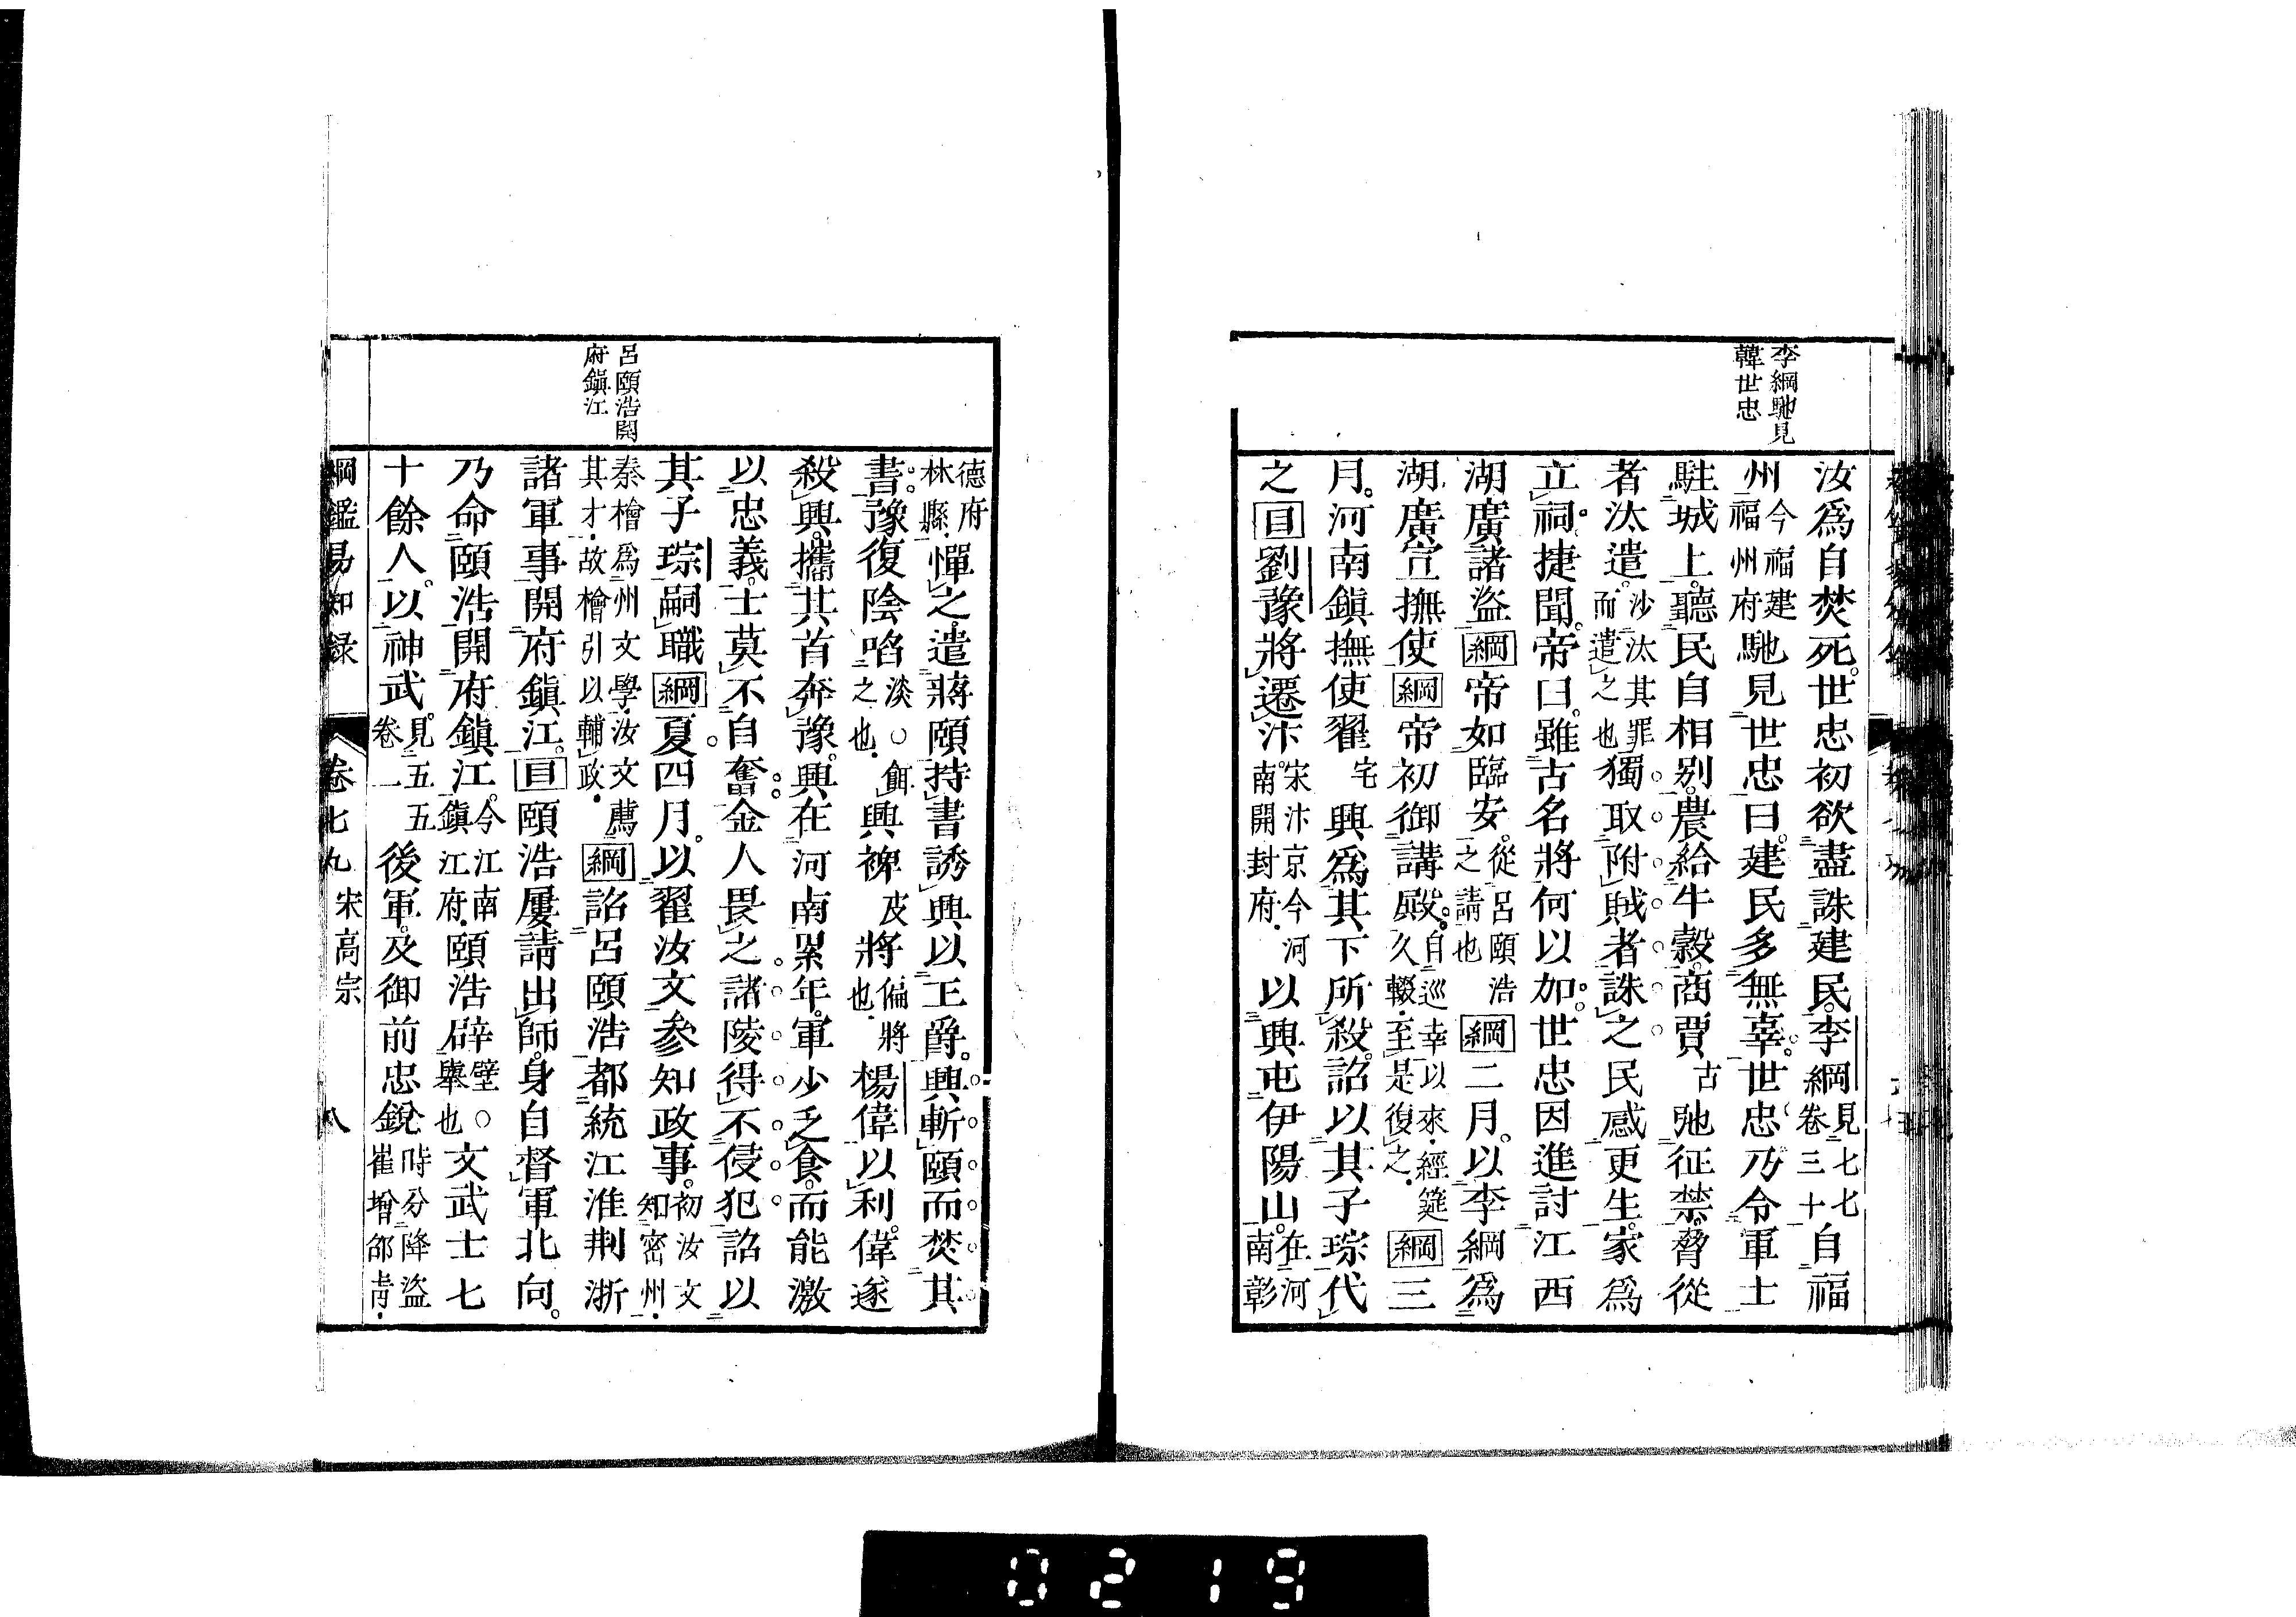 李綱馳見
韓世忠
汝爲自焚死。世忠初欲盡誅建民。李綱見七七卷三十自福
州今福建福州府馳見世忠曰。建民多無辜。世忠乃令軍士
駐城上。聽民自相别。農給牛穀。商賈古弛征禁。脅從
者汰遣。沙汰其罪而遣之也獨取附賊者誅之民感更生。家爲
立祠。捷聞。帝曰。雖古名將何以加。世忠因進討江西
湖廣諸盗綱帝如臨安。從呂頤浩之請也綱二月。以李綱爲
湖廣宣撫使綱帝初御講殿。自巡幸以來。經筵久輟。至是復之。綱三
月。河南鎮撫使翟宅興爲其下所殺。詔以其子琮代
之目劉豫將遷汴。宋汴京今河南開封府。以興屯伊陽山。在河南彰
德府林縣。憚之。遣蔣頤持書誘興以王爵。興斬頤而焚其
書。豫復陰啗淡○餌之也。興裨皮將偏將也。楊偉以利。偉遂
殺興。攜其首奔豫。興在河南累年。軍少乏食。而能激
以忠義。士莫不自奮。金人畏之諸陵得不侵犯詔以
其子琮嗣職綱夏四月。以翟汝文參知政事。初汝文知密州。
秦檜爲州文學。汝文薦其才。故檜引以輔政。綱詔呂頤浩都統江淮荆浙
諸軍事開府鎮江。目頤浩屢請出師。身自督軍北向。
乃命頤浩開府鎮江。今江南鎮江府。頤浩辟壁○舉也文武士七
十餘人。以神武。見五五卷一後軍。及御前忠銳。時分降盜崔增邵靑。
呂頤浩開
府鎮江
綱鑑易知録 卷七九 宋高宗 八
0219